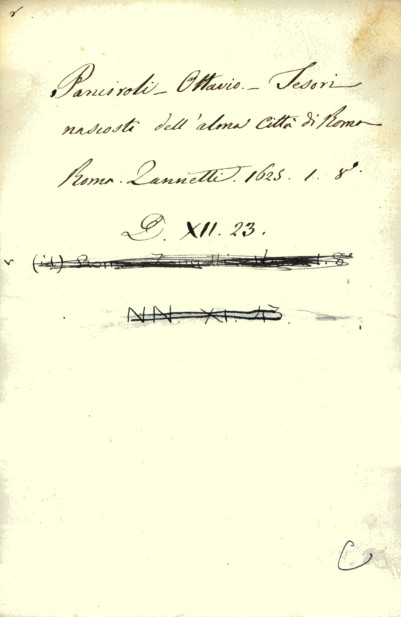 Panciroli - Ottavio. - Tesori
nascosti dell'alma Città di Roma
Roma. Zannetti. 1625. 1. 8°.
D. XII. 23.
(id) Roma
NN. XI. 43.
C